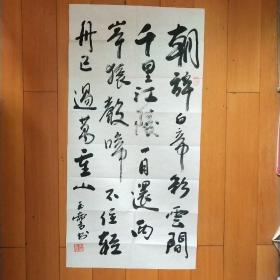 朝辭白帝彩雲間
千里江陵一日還兩
岸猿聲啼不住輕
舟已過萬重山